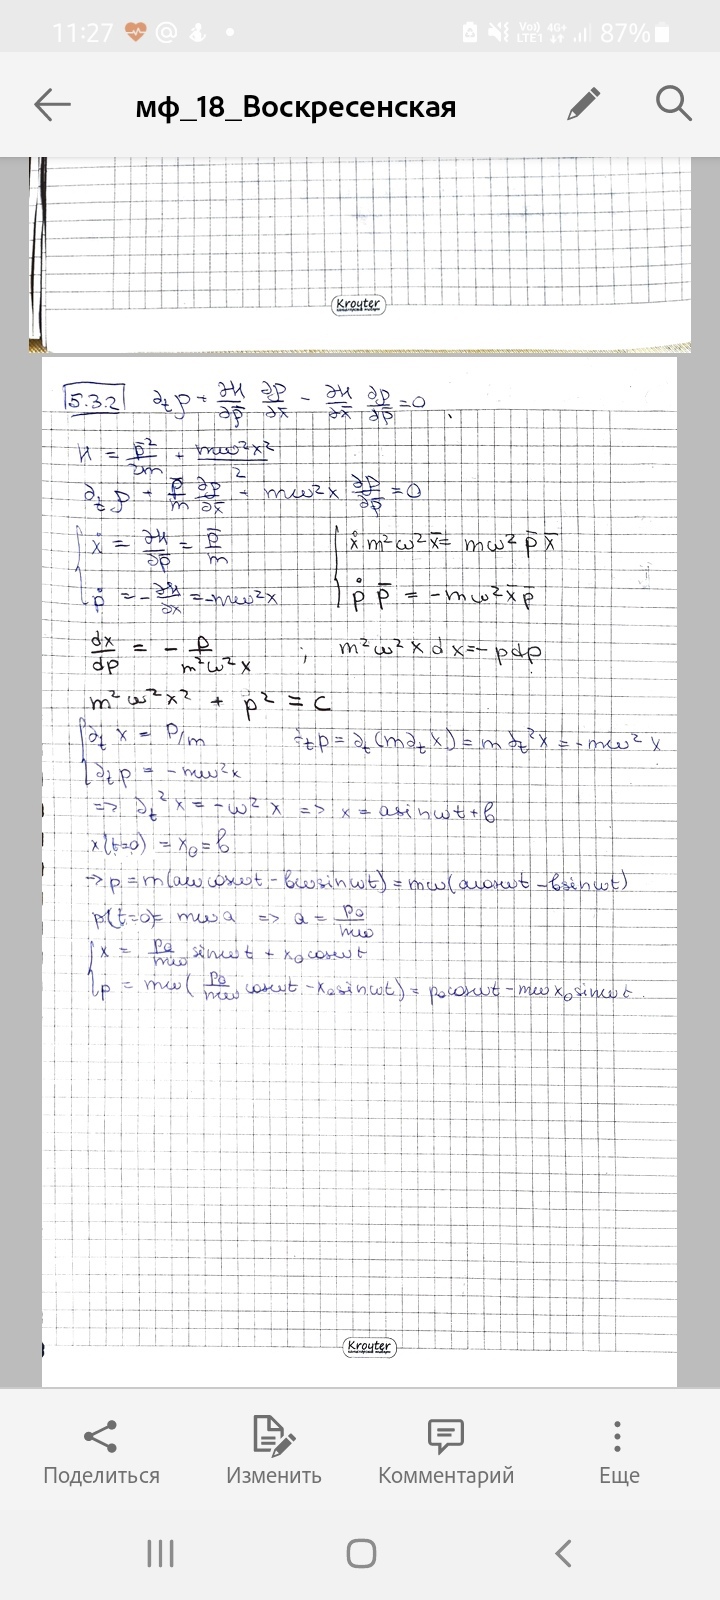 11:27 @ Vo) LTE1 4G+ 87%
мф_18_Воскресенская
Krouter
5.3.2 ∂t ρ + ∂H/∂p̄ ∂ρ/∂x̄ - ∂H/∂x̄ ∂ρ/∂p̄ = 0
H = p̄²/2m + mω²x²/2
∂t ρ + p̄/m ∂ρ/∂x̄ + mω²x ∂ρ/∂p̄ = 0
ẋ = ∂H/∂p = p̄/m
ṗ = -∂H/∂x = -mω²x
ẋ m²ω²x̄ = mω² p̄ x̄
ṗ p̄ = -mω² x̄ p̄
dx/dp = - p/m²ω²x ; m²ω²x dx = -pdp
m²ω²x² + p² = C
∂t x = P/m
∂t p = -mω²x
∂t p = ∂t (m∂t x) = m ∂t² x = -mω² x
=> ∂t² x = -ω² x => x = asinωt + b
x(t=0) = x₀ = b
→ p = m(aωcosωt - bωsinωt) = mω(acosωt - bsinωt)
p(t=0) = mωa => a = p₀/mω
x = p₀/mω sinωt + x₀cosωt
p = mω( p₀/mω cosωt - x₀sinωt) = p₀cosωt - mωx₀sinωt.
Krouter
Поделиться Изменить Комментарий Еще